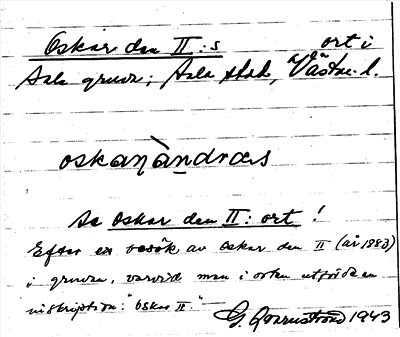 Oskar den II:s ort i
Sala gruva, Sala stad, Västm. l.
oskanàndras
Se Oskar den II: ort!
Efter ett besök av Oskar den II (år 1883)
i gruvan, varvid man i orten utförde en
inskription: "Oskar II." —
G. Qvarnström 1943